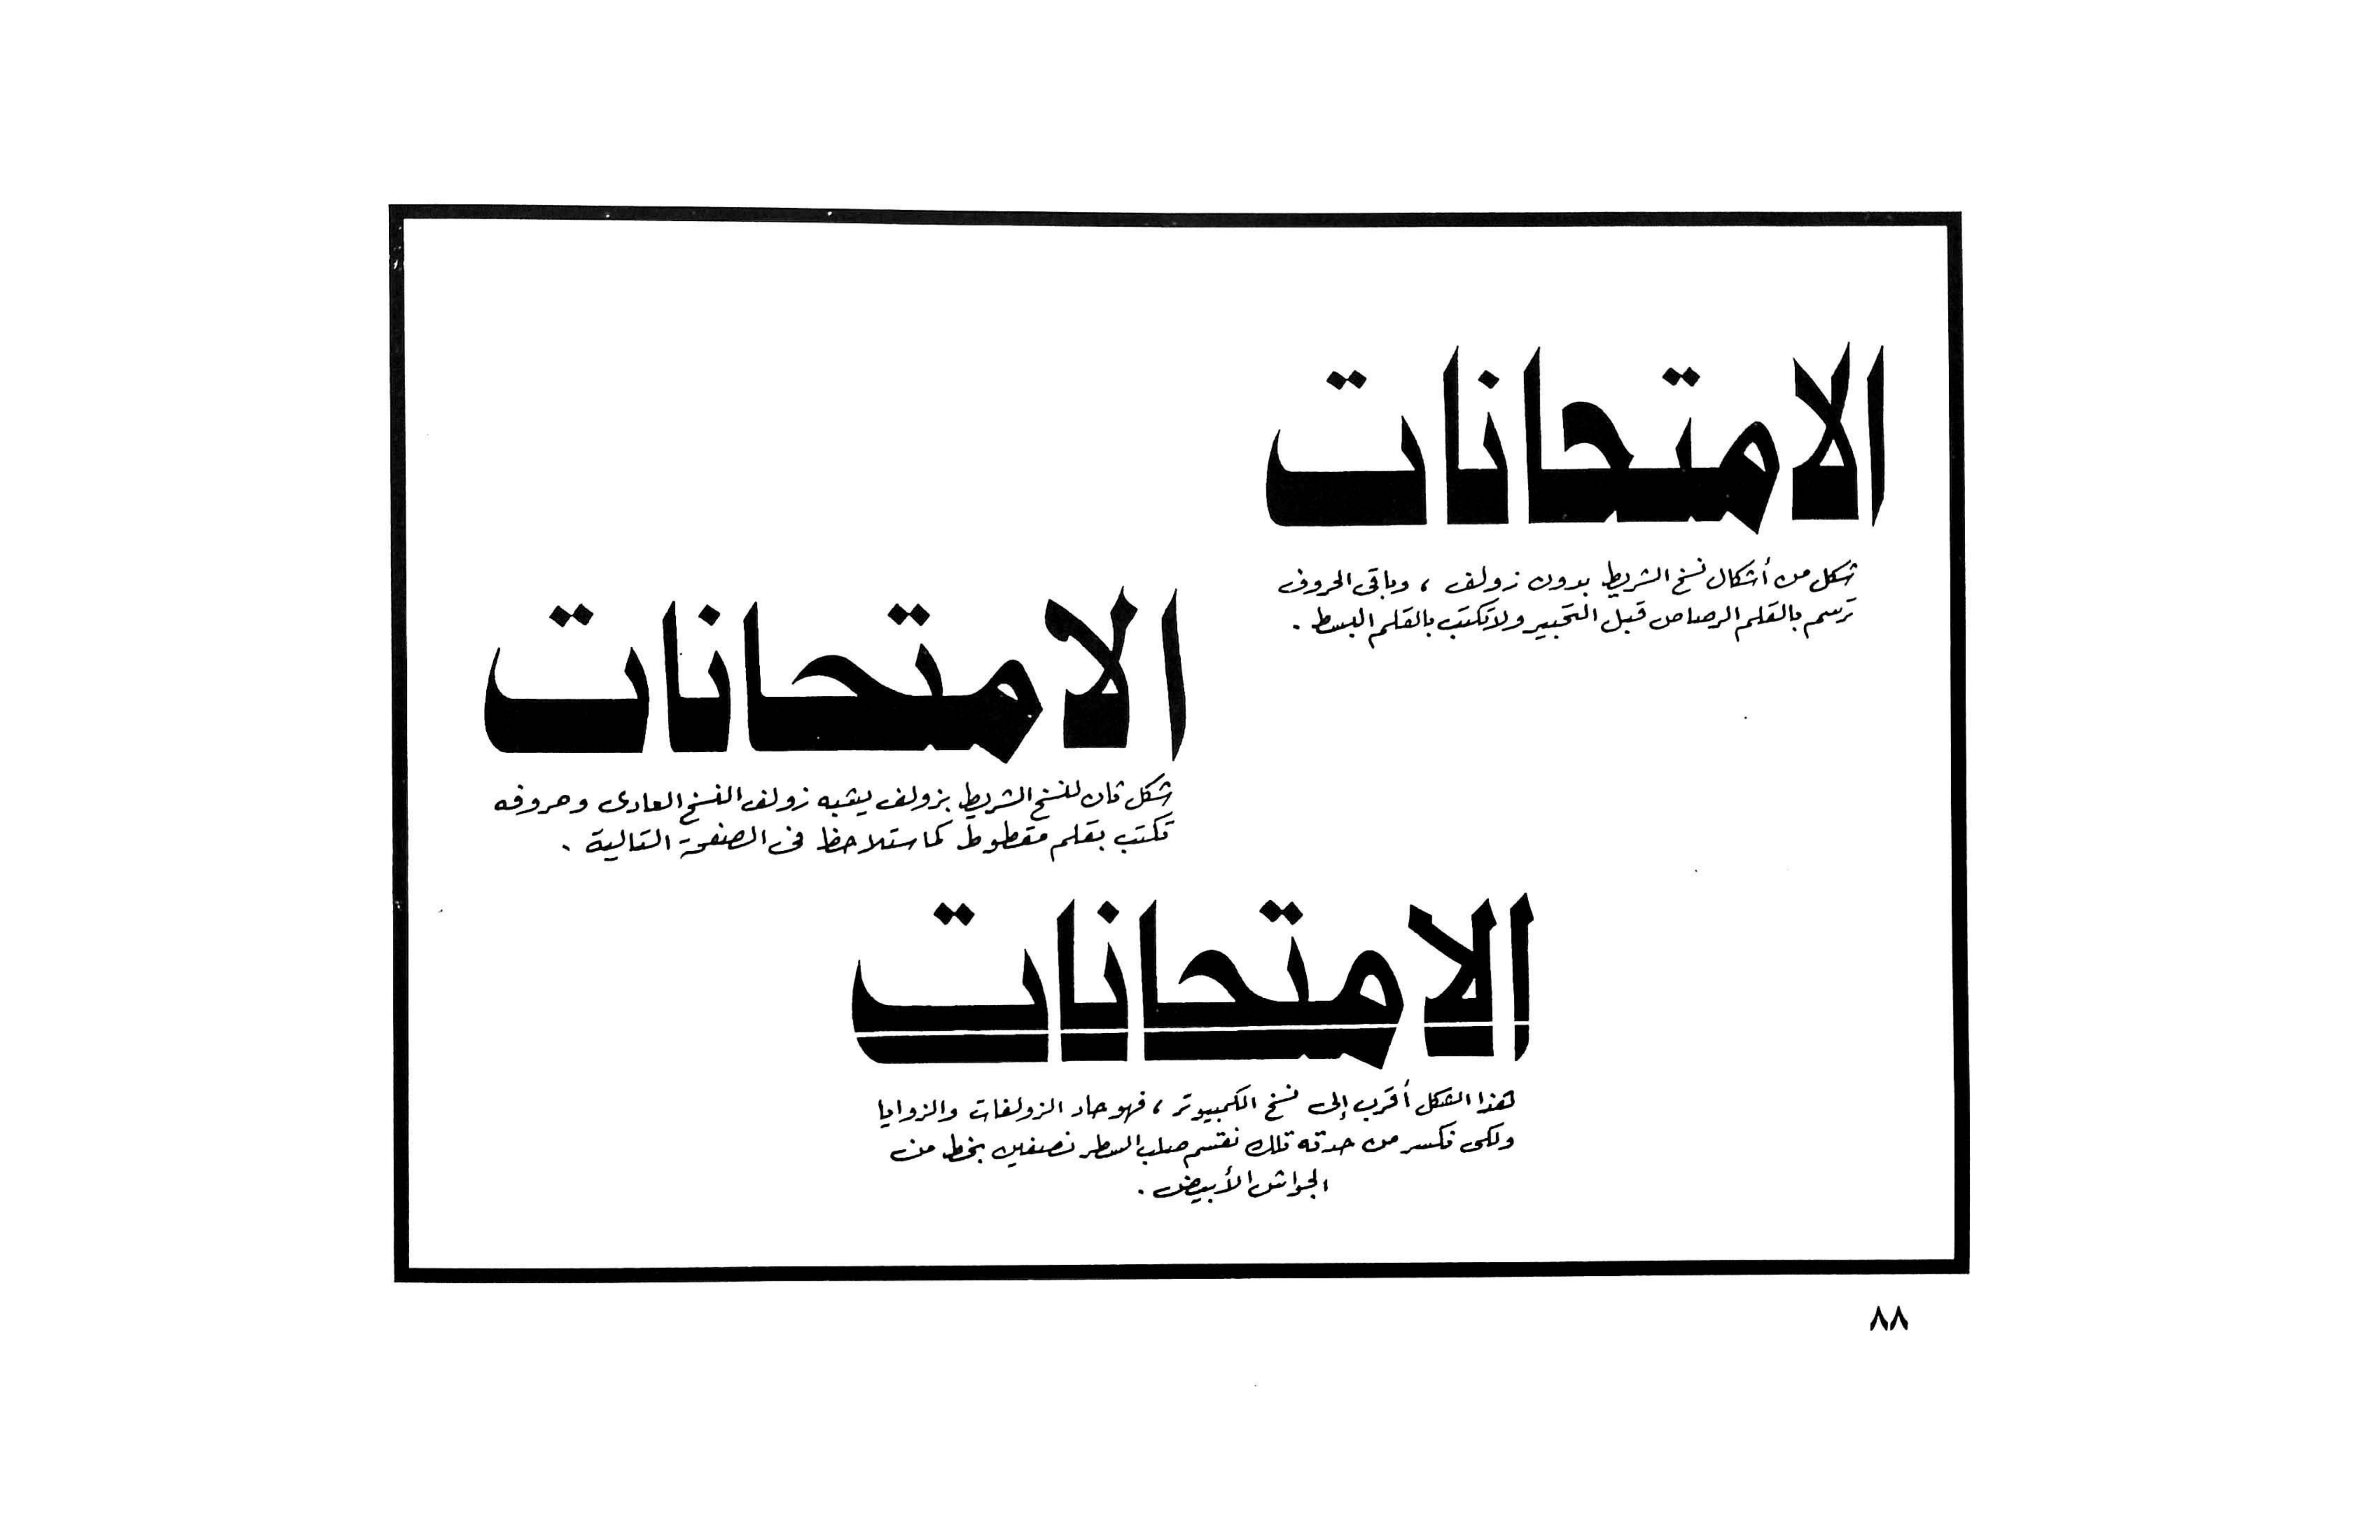 الامتحانات
شكل من أشكال نسخ الشريط بدون زولف ، وباقى الحروف
ترسم بالقلم الرصاص قبل التحبير ولا تكتب بالقلم البسط .
الامتحانات
شكل ثان للنسخ الشريط بزولف يشبه زولف النسخ العادى وحروفه
تكتب بقلم مقطوط كما ستلاحظ فى الصفحة التالية .
الامتحانات
هذا الشكل أقرب إلى نسخ الكمبيوتر ، فهو حاد الزولفات والزوايا
ولكى نكسر من حدته تلك نقسم صلب السطر نصفين بخط من
الجواش الأبيض .
٨٨